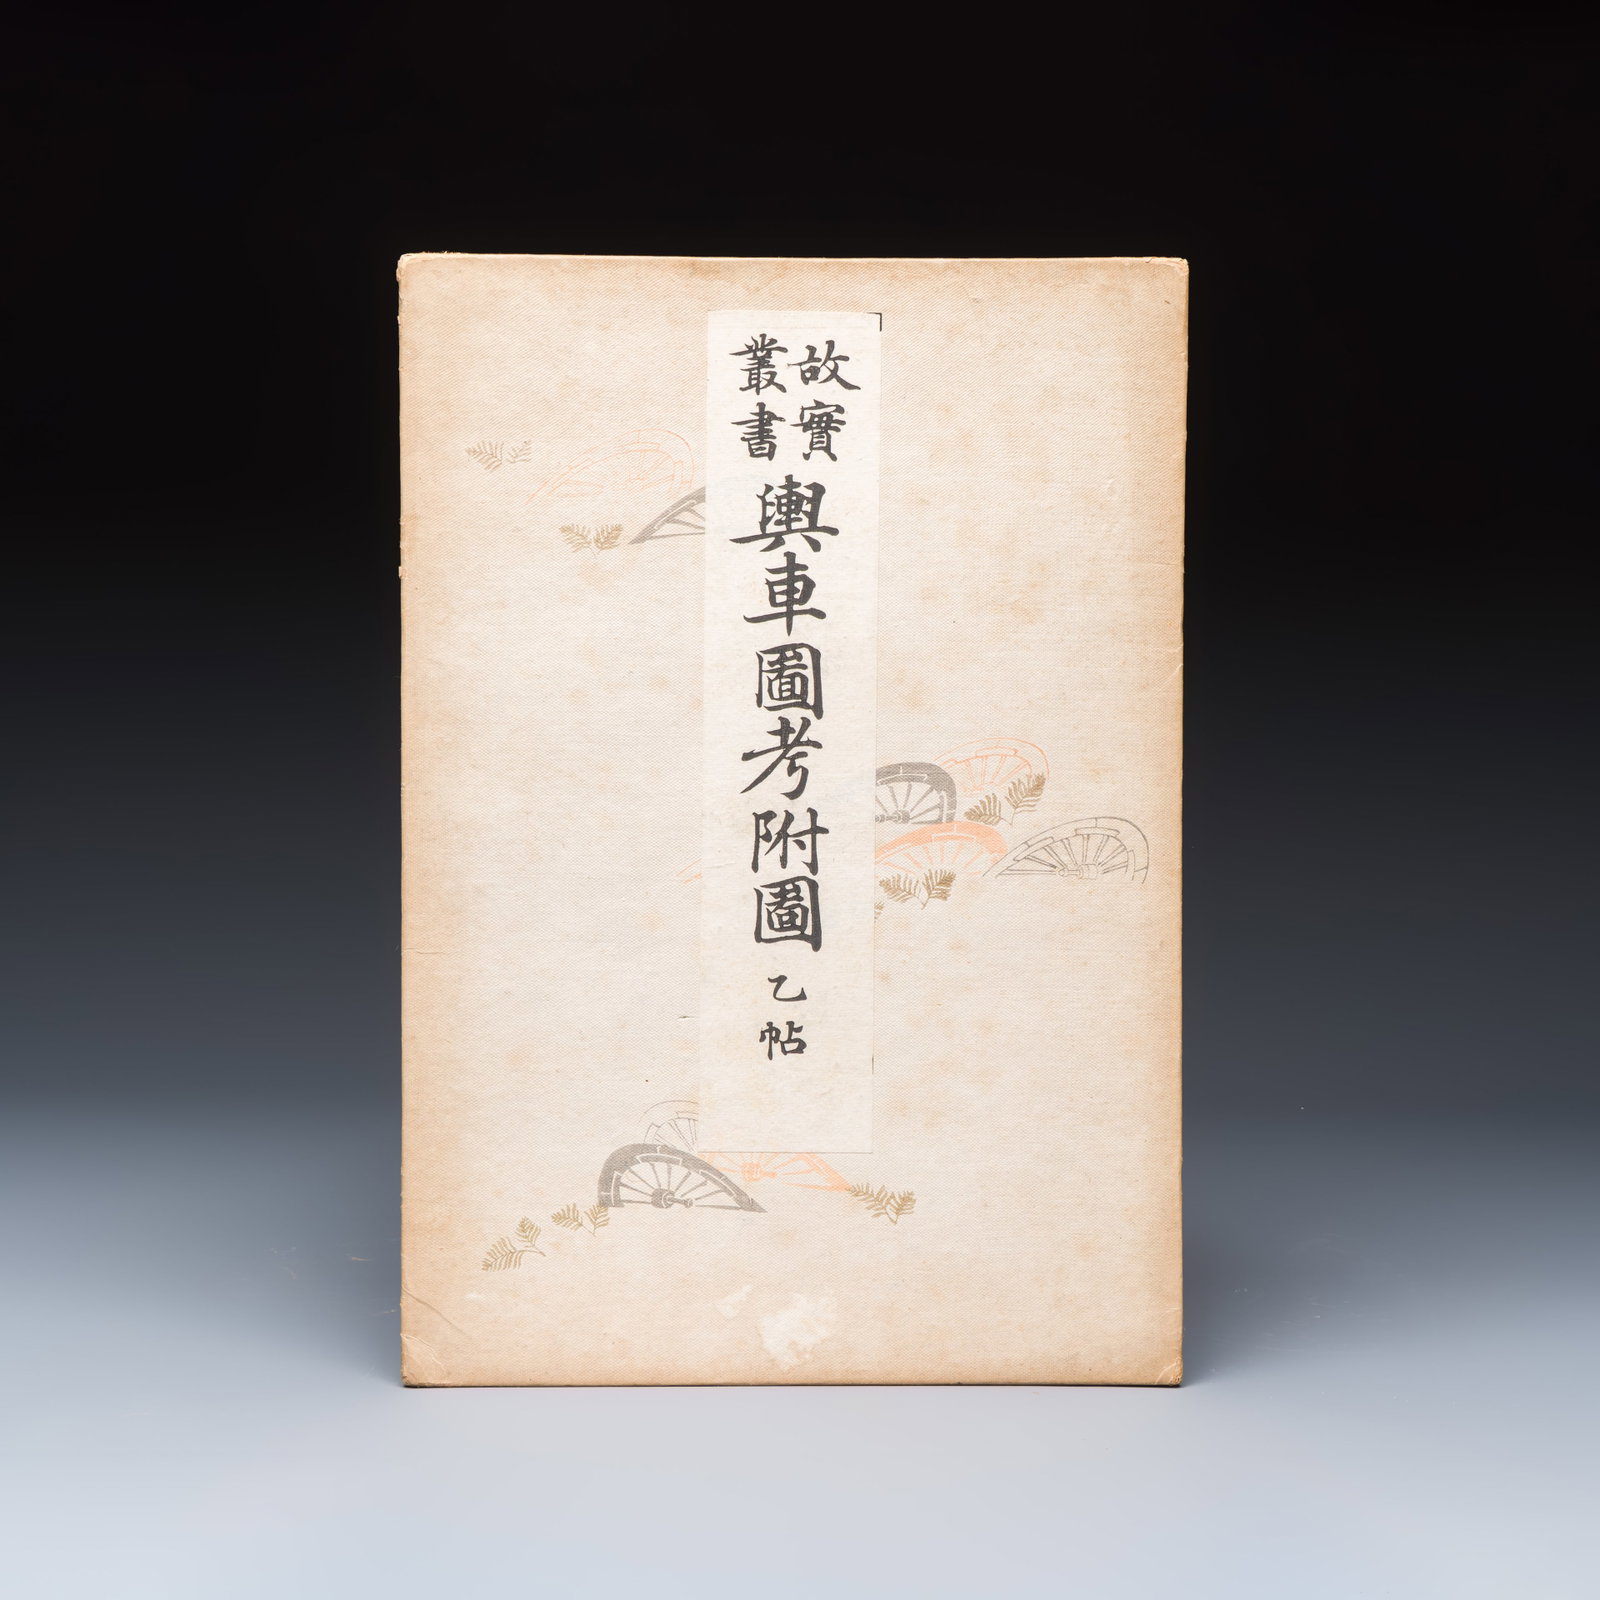 故實
叢書
輿車圖考附圖 乙帖